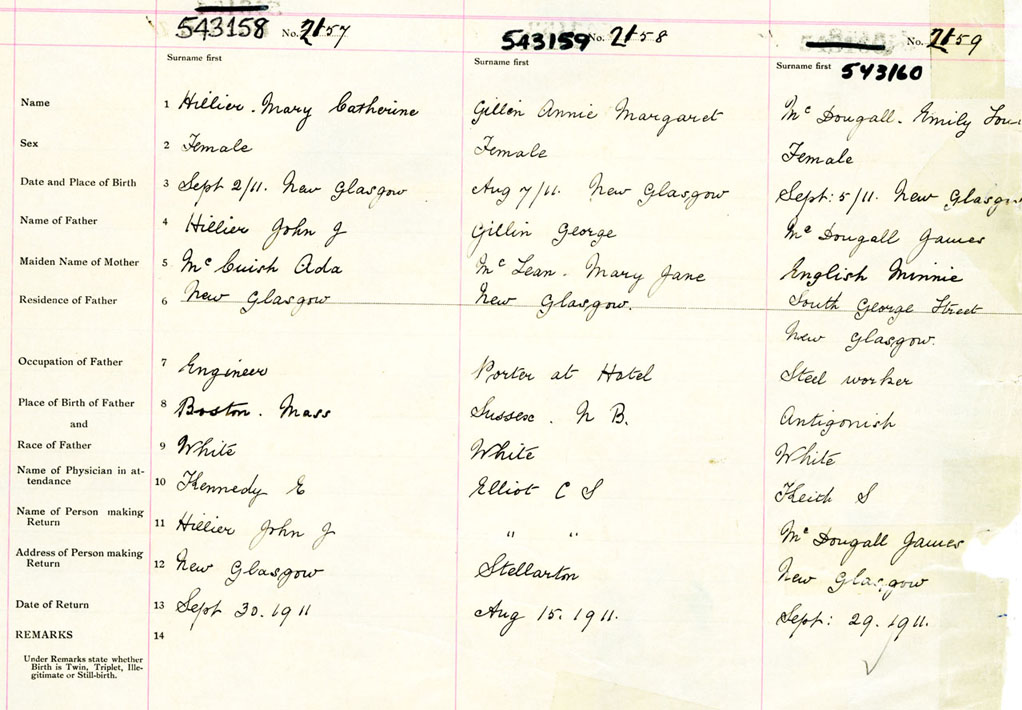 543158 No. 2157 543159 No. 2158 No. 2159
Surname first Surname first Surname first 543160
Name 1 Hillier. Mary Catherine Gillin Annie Margaret Mc Dougall. Emily
Sex 2 Female Female Female
Date and Place of Birth 3 Sept 2/11. New Glasgow Aug 7/11. New Glasgow Sept: 5/11. New Glasgow
Name of Father 4 Hillier John J Gillin George Mc Dougall James
Maiden Name of Mother 5 Mc Cuish Ada Mc Lean. Mary Jane English Minnie
Residence of Father 6 New Glasgow New Glasgow. South George Street
New Glasgow.
Occupation of Father 7 Engineer Porter at Hotel Steel worker
Place of Birth of Father 8 Boston. Mass Sussex. N B. Antigonish
and
Race of Father 9 White White White
Name of Physician in at-
tendance 10 Kennedy E Elliot C S Keith S
Name of Person making
Return 11 Hillier John J " " Mc Dougall James
Address of Person making
Return 12 New Glasgow Stellarton New Glasgow
Date of Return 13 Sept 30. 1911 Aug 15. 1911. Sept: 29. 1911.
REMARKS 14
Under Remarks state whether
Birth is Twin, Triplet, Ille-
gitimate or Still-birth.